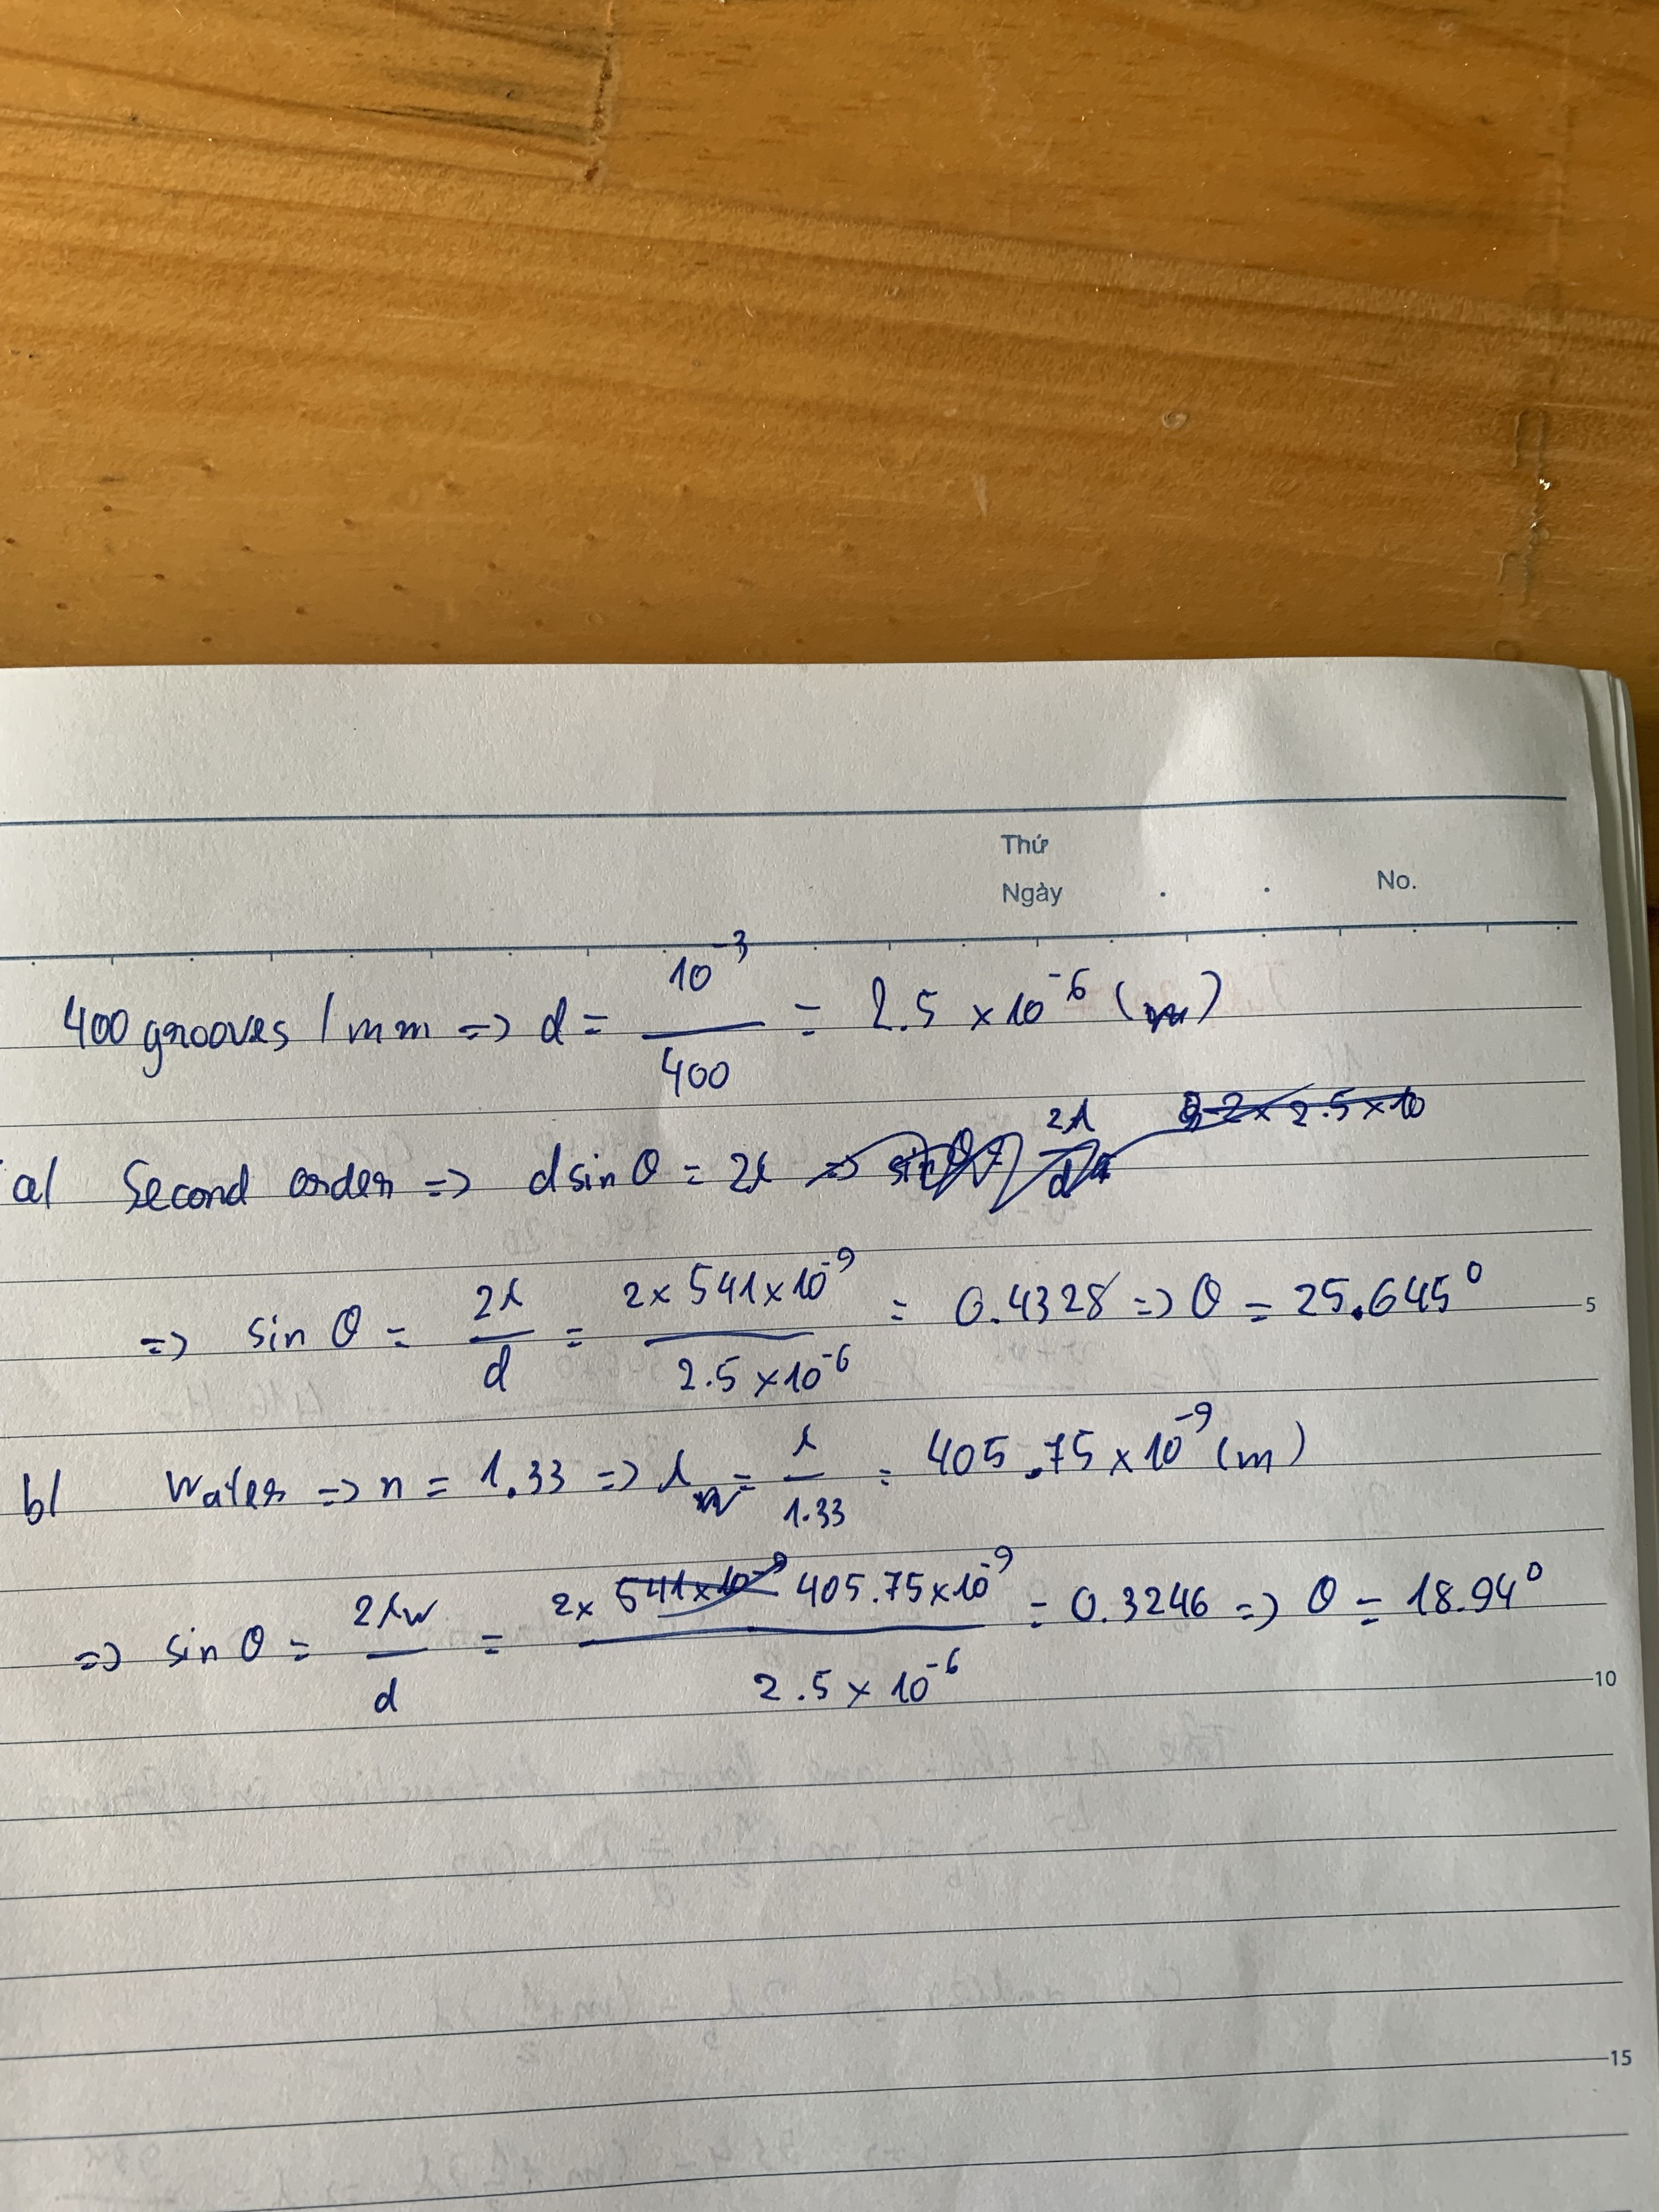 Thứ
Ngày . . No.
400 grooves / mm => d = 10^-3 / 400 = 2.5 x 10^-6 (m)
a/ Second order => d sin θ = 2λ
=> sin θ = 2λ / d = 2 x 541 x 10^-9 / 2.5 x 10^-6 = 0.4328 => θ = 25.645°
5
b/ Water => n = 1.33 => λw = λ / 1.33 = 405.75 x 10^-9 (m)
=> sin θ = 2λw / d = 2 x 541 x 10^-9 405.75 x 10^-9 / 2.5 x 10^-6 = 0.3246 => θ = 18.94°
10
15